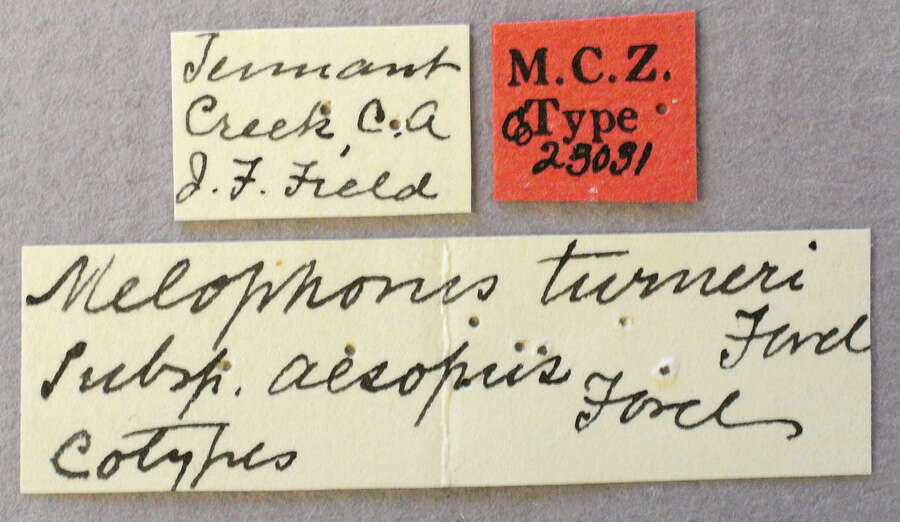 Tennant
Creek, C.A
J. F. Field
M.C.Z.
Type
23031
Melophorus turneri
Forel
Subsp. aesopus
Forel
Cotypes